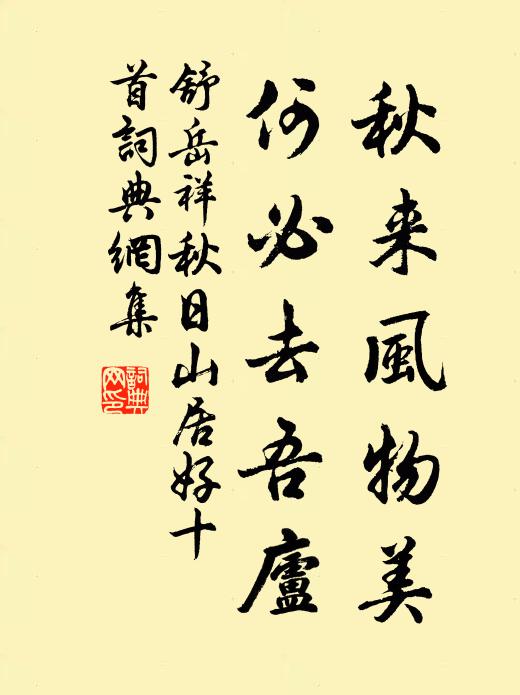 秋来風物美
何必去吾廬
舒岳祥秋日山居好十
首詞典網集
詞典網印